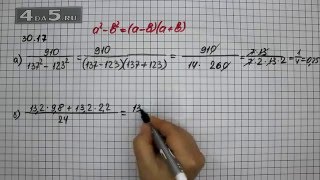 4da5.ru
a² - b² = (a-b)(a+b)
30.17
a) 910 / (137² - 123²) = 910 / ((137-123)(137+123)) = 910 / (14 · 260) = 7·13 / (7·2·13·2) = 1/4 = 0,25
в) (13,2 · 9,8 + 13,2 · 2,2) / 24 = 13,